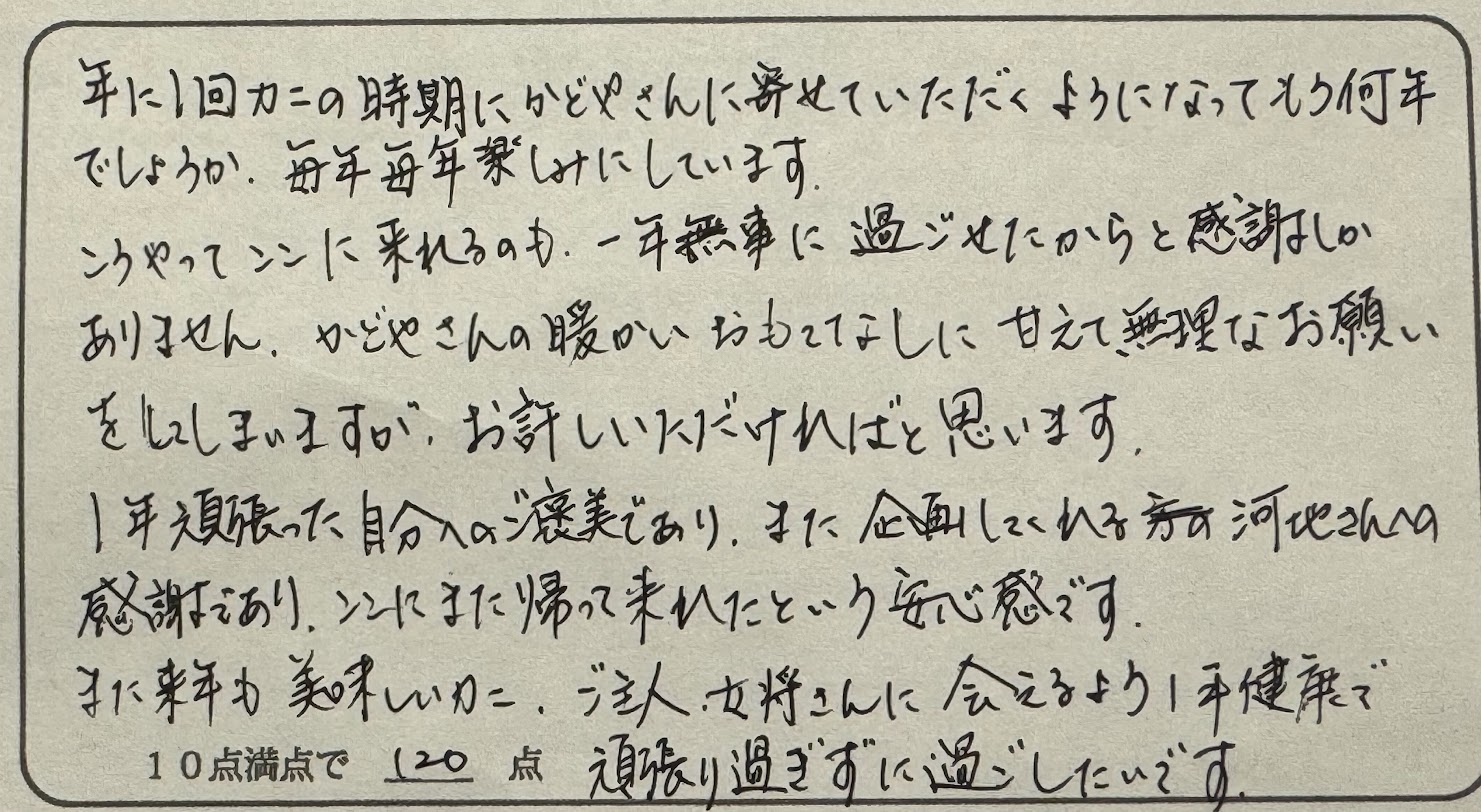 年に1回カニの時期にかどやさんに寄せていただくようになってもう何年
でしょうか、毎年毎年楽しみにしています。
こうやってここに来れるのも、一年無事に過ごせたからと感謝しか
ありません。かどやさんの暖かいおもてなしに甘えて無理なお願い
をしてしまいますが、お許しいただければと思います。
1年頑張った自分へのご褒美であり、また企画してくれる河地さんへの
感謝であり、ここにまた帰って来れたという安心感です。
また来年も美味しいカニ、ご主人、女将さんに会えるよう1年健康で
10点満点で 120 点 頑張り過ぎずに過ごしたいです。